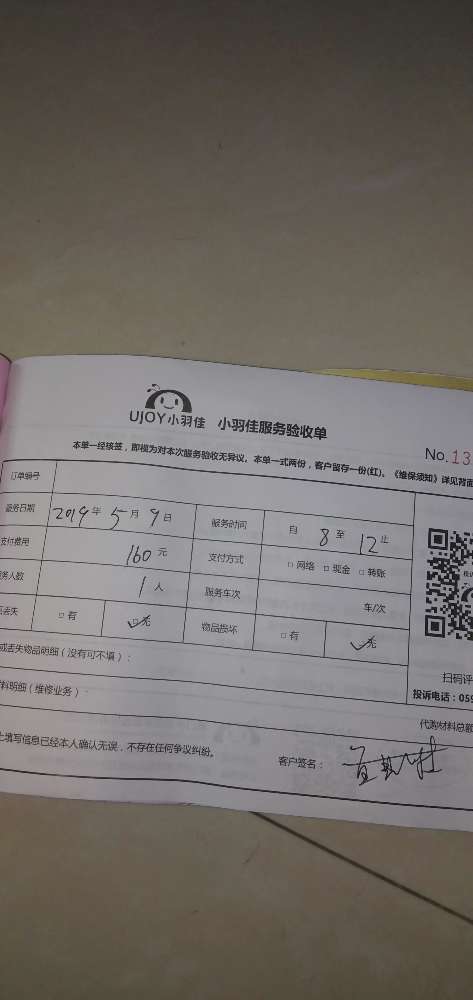 UJOY小羽佳 小羽佳服务验收单
No.13
本单一经核签，即视为对本次服务验收无异议。本单一式两份，客户留存一份(红)。《维保须知》详见背面
订单编号
服务日期 2019年 5月 9日 服务时间 自 8 至 12 止
支付费用 160元 支付方式 □网络 □现金 □转账
务人数 1人 服务车次 车/次
丢失 □有 ☑无 物品损坏 □有 ☑无
扫码评
或丢失物品明细（没有可不填）：
投诉电话：059
料明细（维修业务）：
代购材料总额
上填写信息已经本人确认无误，不存在任何争议纠纷。 客户签名：